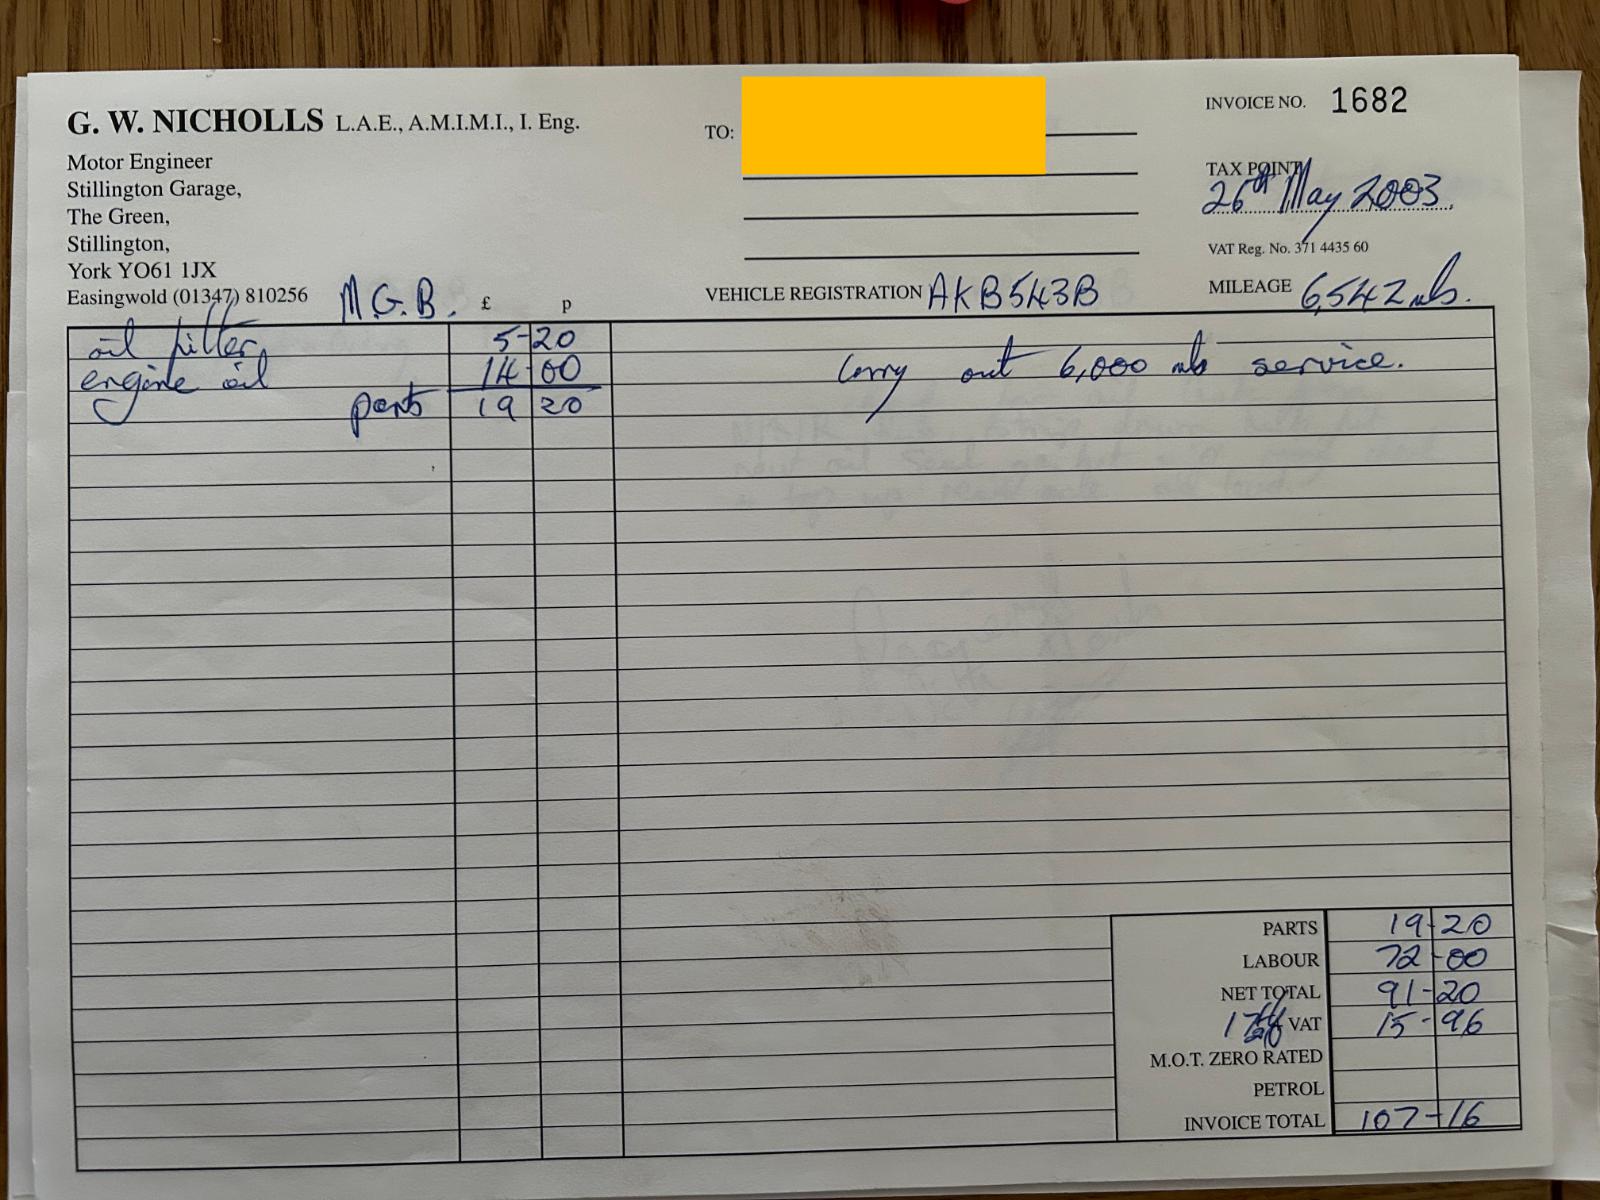 G. W. NICHOLLS L.A.E., A.M.I.M.I., I. Eng.
Motor Engineer
Stillington Garage,
The Green,
Stillington,
York YO61 1JX
Easingwold (01347) 810256
M.G.B.
TO:
INVOICE NO. 1682
TAX POINT
26th May 2003
VAT Reg. No. 371 4435 60
VEHICLE REGISTRATION AKB543B
MILEAGE 6,542 mls.
£ p
oil filter 5-20
engine oil 14-00
parts 19 20
Carry out 6,000 mls service.
PARTS 19-20
LABOUR 72-00
NET TOTAL 91-20
VAT 15-96
M.O.T. ZERO RATED
PETROL
INVOICE TOTAL 107-16